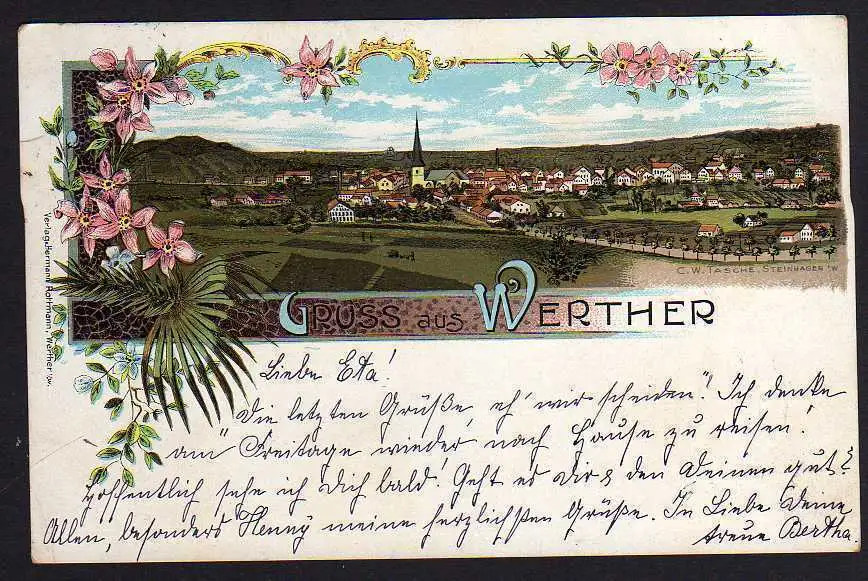 C. W. TASCHE, STEINHAGEN i/W
Verlag v. Hermann Rottmann, Werther i/W.
GRUSS aus WERTHER
Liebe Eta!
Die letzten Grüße, eh' wir scheiden"! Ich denke
am Freitage wieder nach Hause zu reisen!
Hoffentlich sehe ich Dich bald! Geht es Dir & den Deinen gut?
Allen, besonders Henny meine herzlichsten Grüße. In Liebe Deine
treue Bertha.